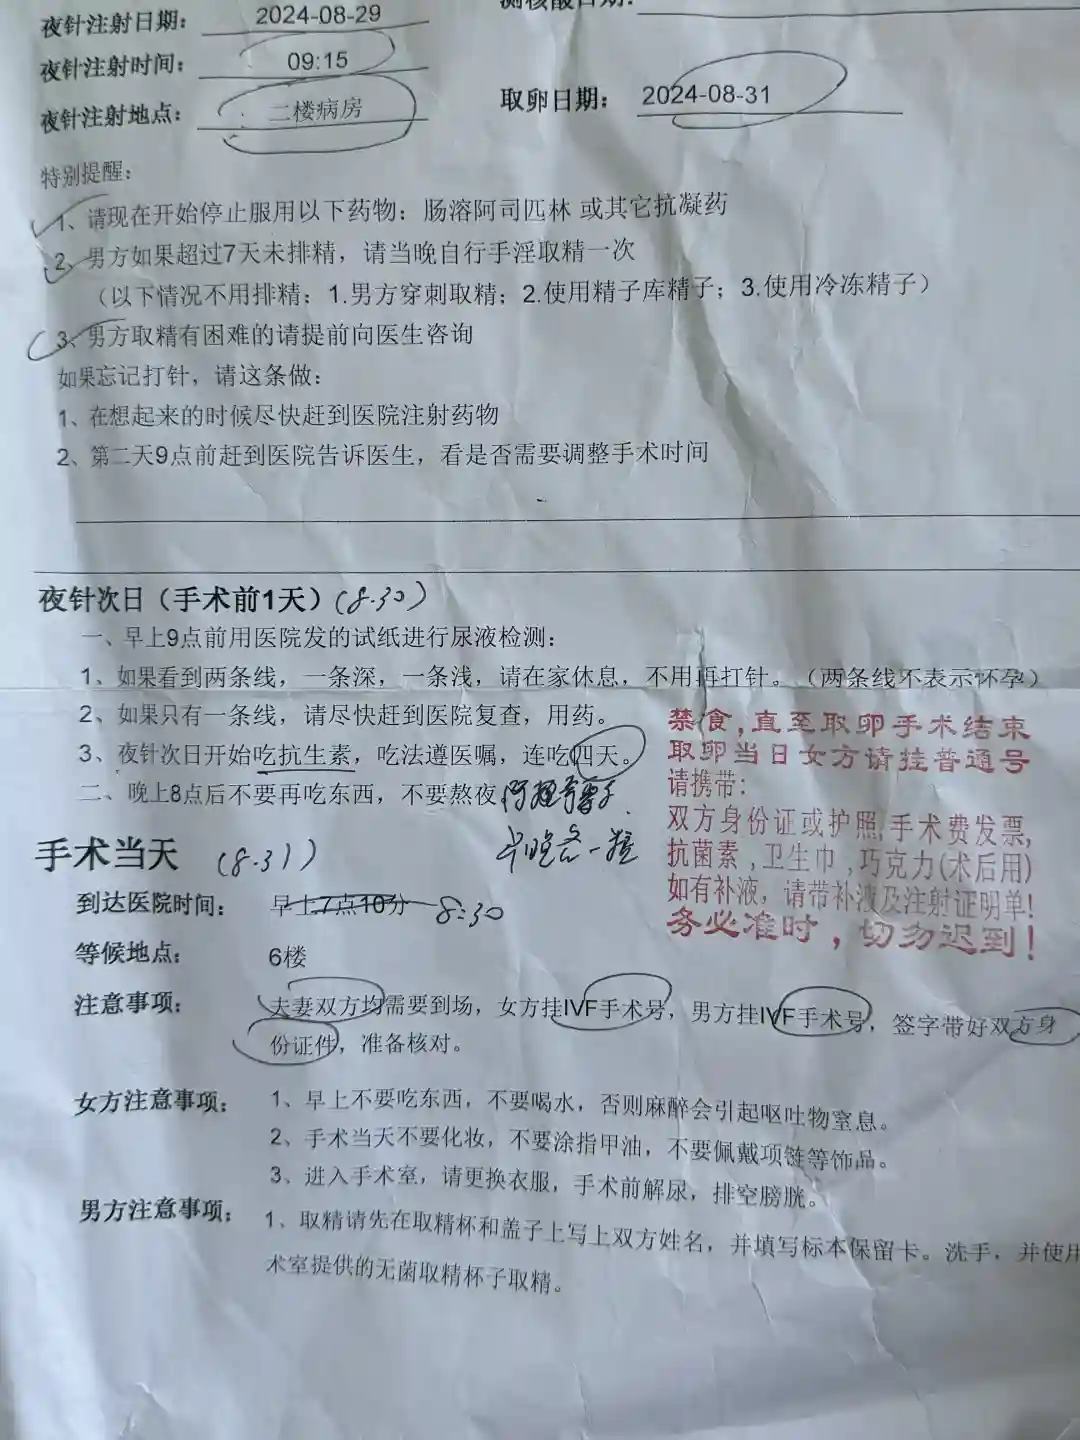 夜针注射日期: 2024-08-29
夜针注射时间: 09:15
夜针注射地点: 二楼病房
取卵日期: 2024-08-31
特别提醒:
1、请现在开始停止服用以下药物:肠溶阿司匹林 或其它抗凝药
2、男方如果超过7天未排精,请当晚自行手淫取精一次
(以下情况不用排精:1.男方穿刺取精;2.使用精子库精子;3.使用冷冻精子)
3、男方取精有困难的请提前向医生咨询
如果忘记打针,请这条做:
1、在想起来的时候尽快赶到医院注射药物
2、第二天9点前赶到医院告诉医生,看是否需要调整手术时间
夜针次日(手术前1天)(8.30)
一、早上9点前用医院发的试纸进行尿液检测:
1、如果看到两条线,一条深,一条浅,请在家休息,不用再打针。(两条线不表示怀孕)
2、如果只有一条线,请尽快赶到医院复查,用药。
3、夜针次日开始吃抗生素,吃法遵医嘱,连吃四天。
二、晚上8点后不要再吃东西,不要熬夜
早晚各一粒
禁食,直至取卵手术结束
取卵当日女方请挂普通号
请携带:
双方身份证或护照,手术费发票,
抗菌素,卫生巾,巧克力(术后用)
如有补液,请带补液及注射证明单!
务必准时,切勿迟到!
手术当天 (8.31)
到达医院时间: 早上7点10分 8:30
等候地点: 6楼
注意事项: 夫妻双方均需要到场,女方挂IVF手术号,男方挂IVF手术号,签字带好双方身
份证件,准备核对。
女方注意事项: 1、早上不要吃东西,不要喝水,否则麻醉会引起呕吐物窒息。
2、手术当天不要化妆,不要涂指甲油,不要佩戴项链等饰品。
3、进入手术室,请更换衣服,手术前解尿,排空膀胱。
男方注意事项: 1、取精请先在取精杯和盖子上写上双方姓名,并填写标本保留卡。洗手,并使用
术室提供的无菌取精杯子取精。